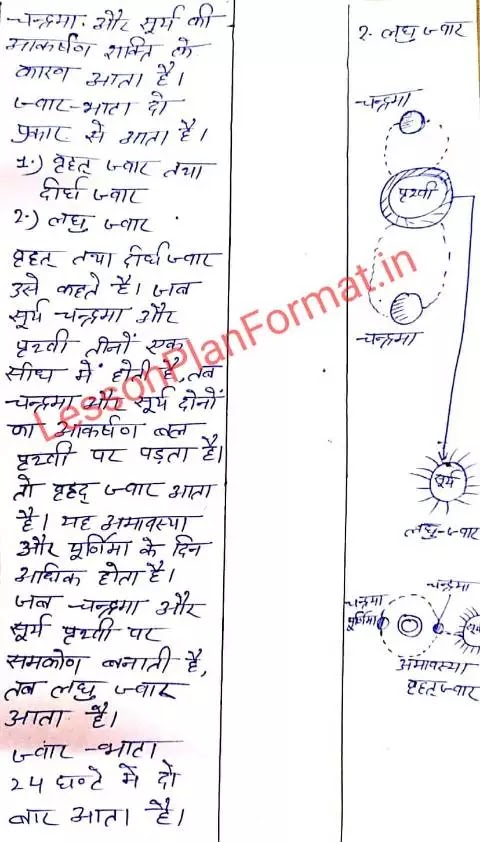 चन्द्रमा और सूर्य की
आकर्षण शक्ति के
कारण आता है।
ज्वार-भाटा दो
प्रकार से आता है।
1.) वृहत् ज्वार तथा
दीर्घ ज्वार
2.) लघु ज्वार
वृहत् तथा दीर्घ ज्वार
उसे कहते है। जब
सूर्य चन्द्रमा और
पृथ्वी तीनों एक
सीध में होती है, तब
चन्द्रमा और सूर्य दोनों
का आकर्षण बल
पृथ्वी पर पड़ता है।
तो वृहद् ज्वार आता
है। यह अमावस्या
और पूर्णिमा के दिन
अधिक होता है।
जब चन्द्रमा और
सूर्य पृथ्वी पर
समकोण बनाती है,
तब लघु ज्वार
आता है।
ज्वार-भाटा
24 घण्टे में दो
बार आता है।
2. लघु ज्वार
चन्द्रमा
पृथ्वी
चन्द्रमा
सूर्य
लघु-ज्वार
चन्द्रमा
चन्द्रमा
पूर्णिमा
अमावस्या
वृहत् ज्वार
LessonPlanFormat.in